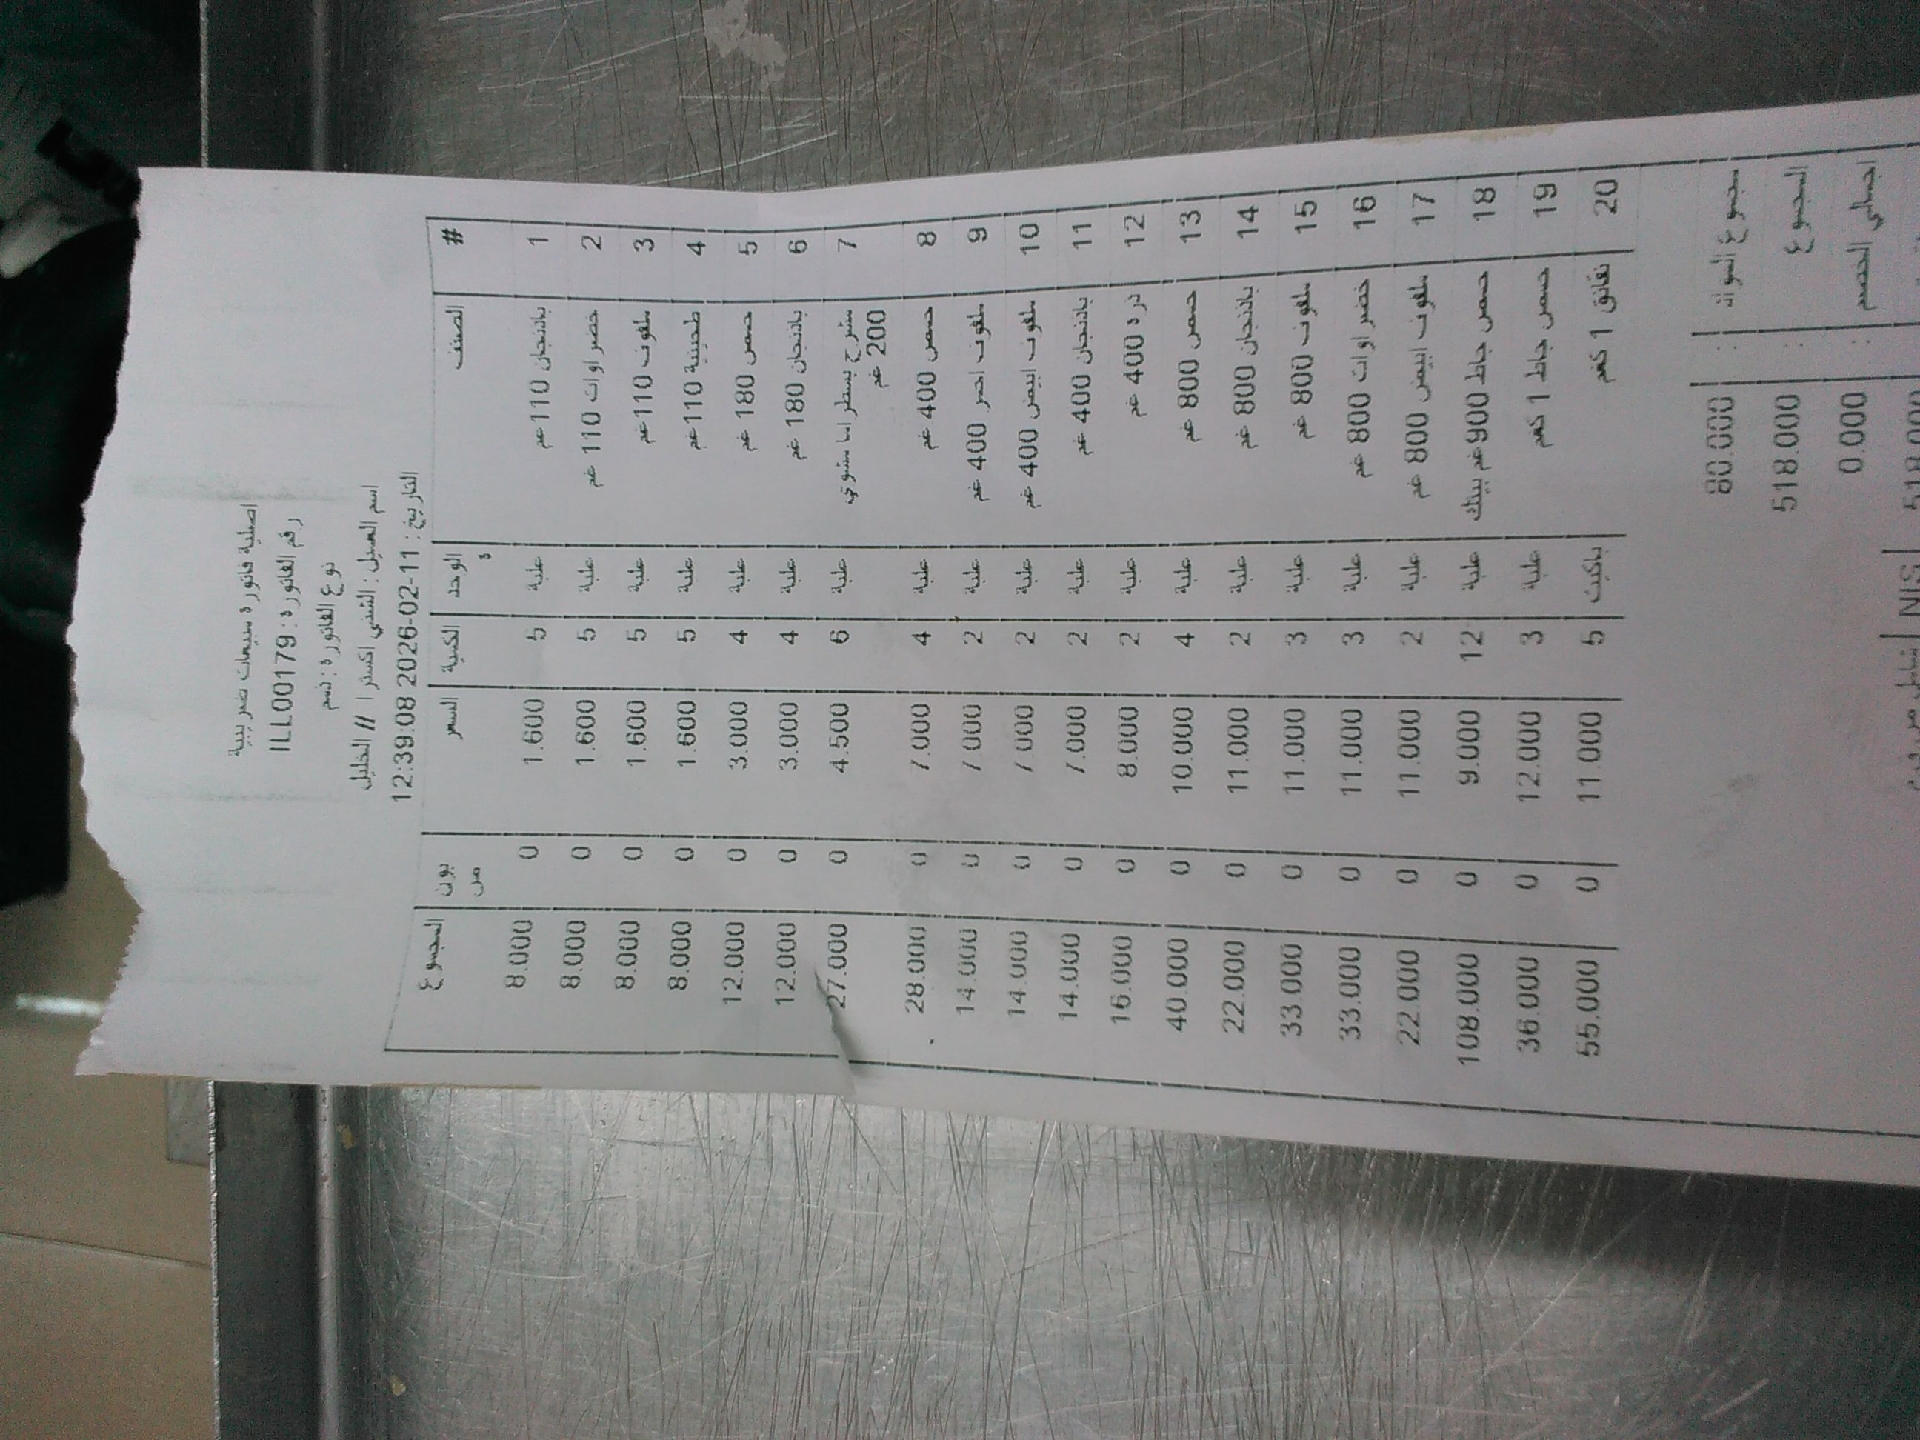 اصلية فاتورة مبيعات ضريبية
رقم الفاتورة : ILL00179
نوع الفاتورة : ذمم
اسم العميل : الشني اكسترا // الخليل
التاريخ : 2026-02-11 12:39:08
# الصنف الوحدة الكمية السعر بونص المجموع
1 باذنجان 110غم علبة 5 1.600 0 8.000
2 خضراوات 110 غم علبة 5 1.600 0 8.000
3 ملفوف 110غم علبة 5 1.600 0 8.000
4 طحينية 110غم علبة 5 1.600 0 8.000
5 حمص 180 غم علبة 4 3.000 0 12.000
6 باذنجان 180 غم علبة 4 3.000 0 12.000
7 مشرح بسطراما مشوي 200 غم علبة 6 4.500 0 27.000
8 حمص 400 غم علبة 4 7.000 0 28.000
9 ملفوف احمر 400 غم علبة 2 7.000 0 14.000
10 ملفوف ابيض 400 غم علبة 2 7.000 0 14.000
11 باذنجان 400 غم علبة 2 7.000 0 14.000
12 ذرة 400 غم علبة 2 8.000 0 16.000
13 حمص 800 غم علبة 4 10.000 0 40.000
14 باذنجان 800 غم علبة 2 11.000 0 22.000
15 ملفوف 800 غم علبة 3 11.000 0 33.000
16 خضراوات 800 غم علبة 3 11.000 0 33.000
17 ملفوف ابيض 800 غم علبة 2 11.000 0 22.000
18 حمص جاط 900غم بيتك علبة 12 9.000 0 108.000
19 حمص جاط 1 كغم علبة 3 12.000 0 36.000
20 نقانق 1 كغم باكيت 5 11.000 0 55.000
مجموع المواد : 80.000
المجموع : 518.000
اجمالي الخصم : 0.000
518.000
NIS